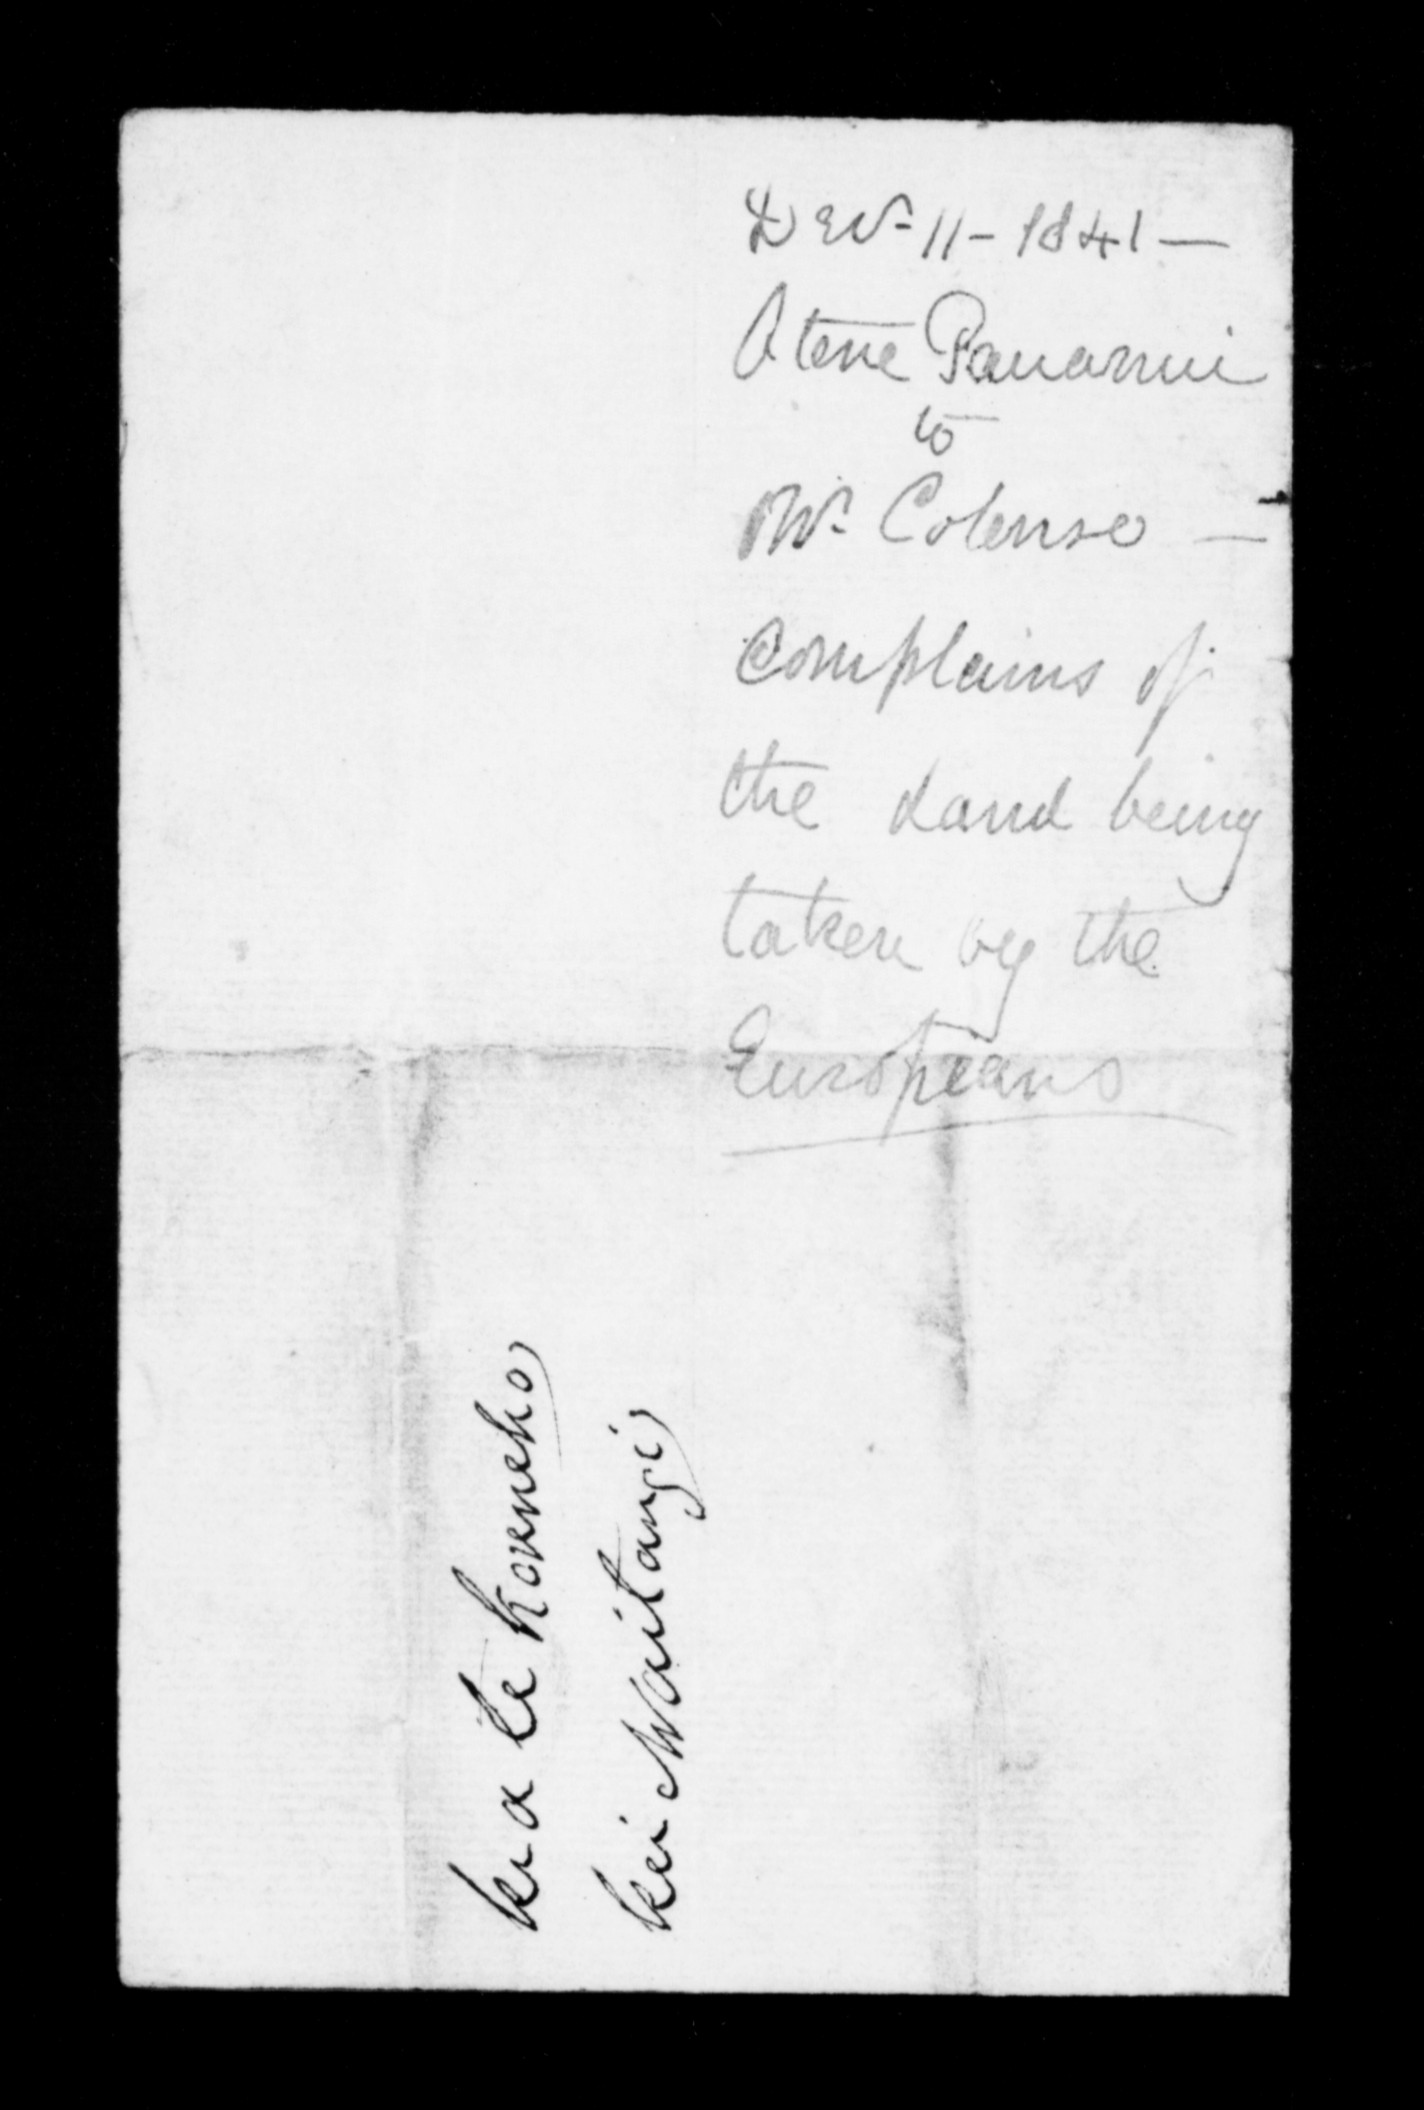 Decr 11 - 1841 —
Atene Pauamui
to
Mr Colenso —
complains of
the Land being
taken by the
Europeans
kia te Koreneho
kei Waitangi